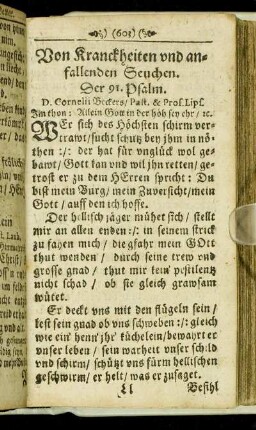 (601)
Von Kranckheiten vnd an-
fallenden Seuchen.
Der 91. Psalm.
D. Cornelii Beckers/ Past. & Prof. Lips.
Im thon: Allein Gott in der höh sey ehr/ ꝛc.
WEr sich des Höchsten schirm ver-
trawt/ sucht schutz bey jhm in nö-
then :/: der hat für vnglück wol ge-
bawt/ Gott kan vnd wil jhn retten/ ge-
trost er zu dem HErren spricht: Du
bist mein Burg/ mein Zuversicht/ mein
Gott/ auff den ich hoffe.
Der hellisch jäger mühet sich/ stellt
mir an allen enden :/: in seinem strick
zu fahen mich/ die gfahr mein GOtt
thut wenden/ durch seine trew vnd
grosse gnad/ thut mir kein pestilentz
nicht schad/ ob sie gleich grawsam
wütet.
Er deckt vns mit den flügeln sein/
lest sein gnad ob vns schweben :/: gleich
wie ein henn jhr küchelein/ bewahrt er
vnser leben/ sein warheit vnser schild
vnd schirm/ schützt vns fürm hellischen
geschwirm/ er helt/ was er zusaget.
Ll
Befihl